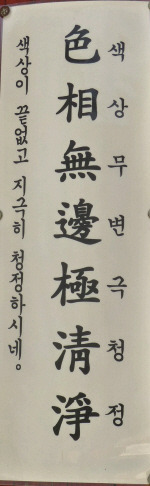 색상무변극청정
色相無邊極淸淨
색상이 끝없고 지극히 청정하시네。